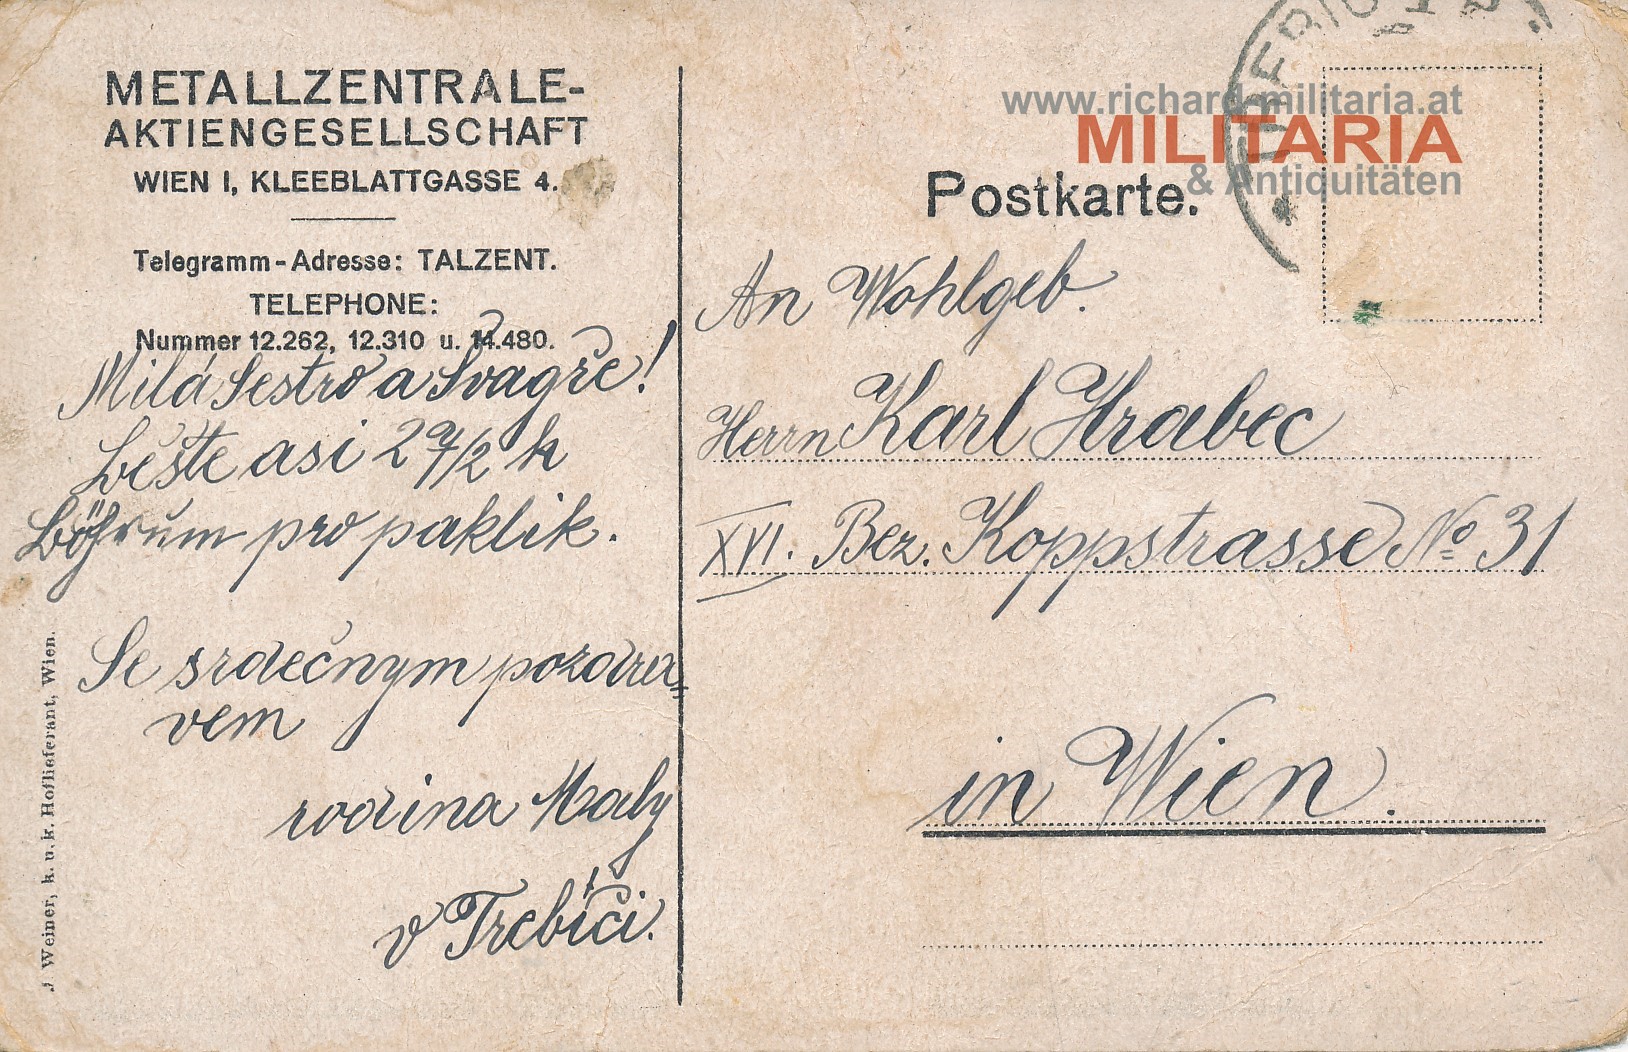 METALLZENTRALE-
AKTIENGESELLSCHAFT
WIEN I, KLEEBLATTGASSE 4.
Telegramm-Adresse: TALZENT.
TELEPHONE:
Nummer 12.262, 12.310 u. 14.480.
Milá Sestro a Švagře!
asi 2
pro paklik.
Se srdečnym pozdra=
vem
rodina Maly
v Třebíči.
J. Weiner, k. u. k. Hoflieferant, Wien.
www.richard-militaria.at
MILITARIA
& Antiquitäten
Postkarte.
An Wohlgeb.
Herrn Karl Hrabec
XVI. Bez. Koppstrasse No 31
in Wien.